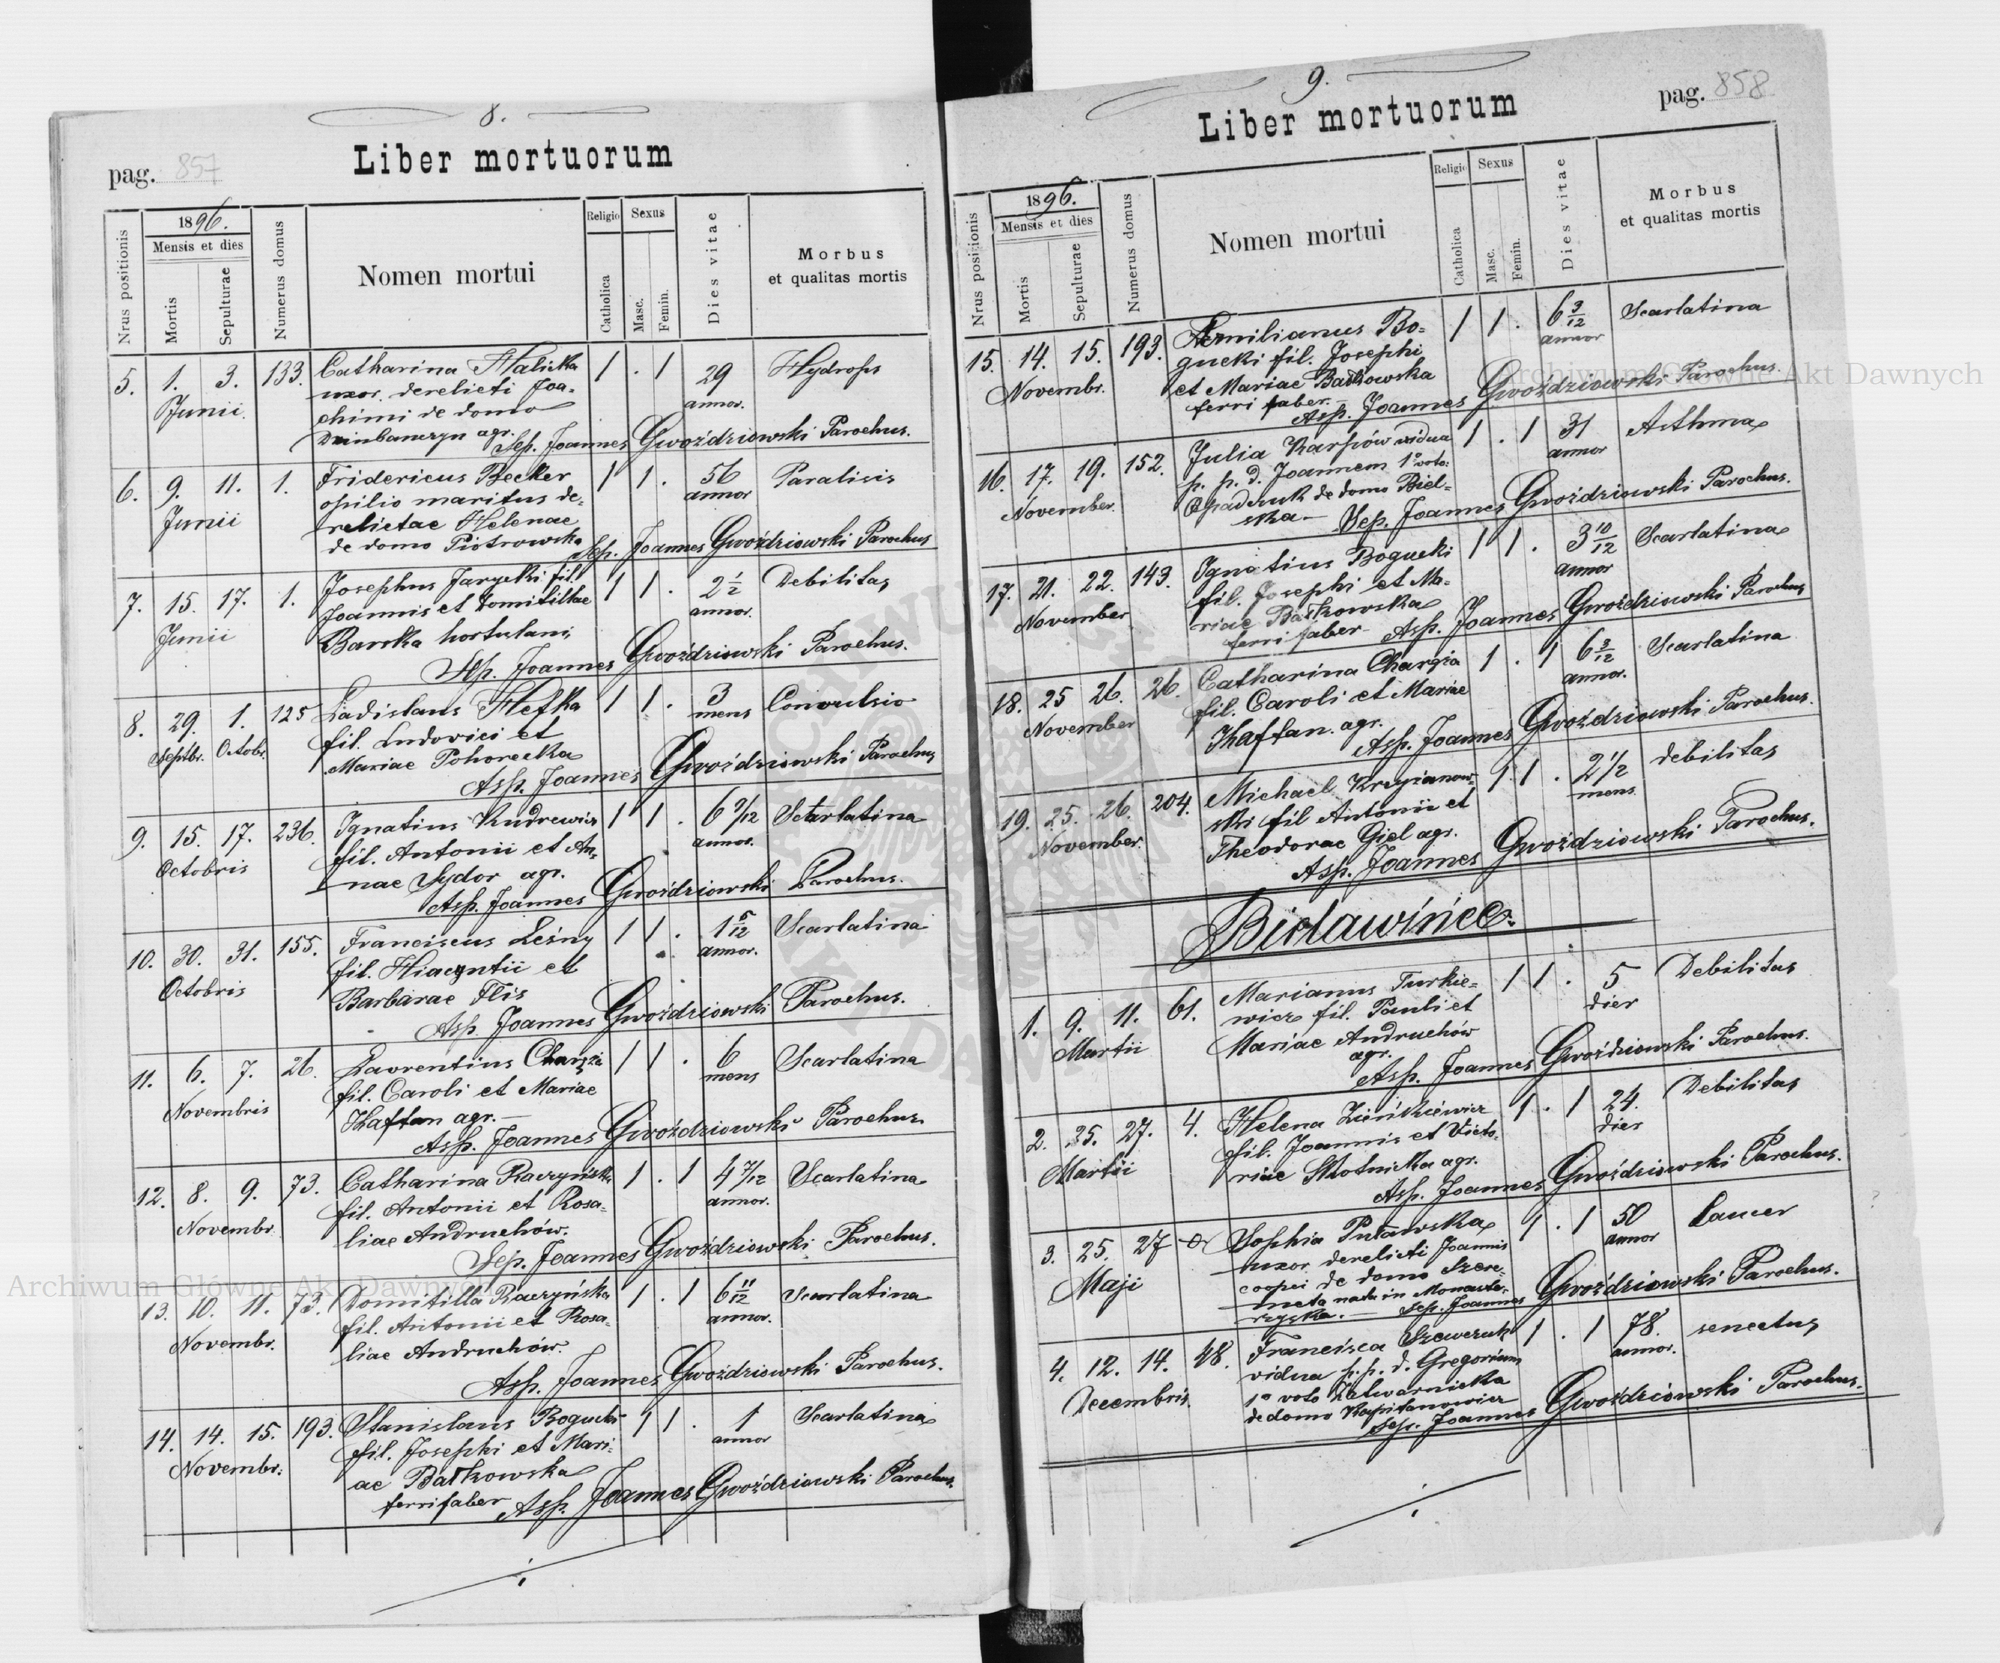 8.
pag. 857
Liber mortuorum
Nrus positionis
1896.
Mensis et dies
Mortis
Sepulturae
Numerus domus
Nomen mortui
Religio
Catholica
Sexus
Masc.
Femin.
Dies vitae
Morbus
et qualitas mortis
5. 1. 3. 133. Catharina Halicka 1 . 1 29 Hydrops
Junii uxor derelicti Joa- annor.
chimi de domo
agr. Sep. Joannes Gwoździowski Parochus.
6. 9. 11. 1. Fridericus Becker 1 1 . 56 Paralisis
Junii opilio maritus de- annor
relictae Helenae
de domo Piotrowska Sep. Joannes Gwoździowski Parochus
7. 15. 17. 1. Josephus Jarycki fil. 1 1 . 2 1/2 Debilitas
Junii Joannis et Domitillae annor.
Barska hortulani
Sep. Joannes Gwoździowski Parochus.
8. 29. 1. 125 Ladislaus Hefka 1 1 . 3 Convulsio
Septbr. Octobr. fil. Ludovici et mens
Mariae Pohorecka
Asp. Joannes Gwoździowski Parochus
9. 15. 17. 236. Ignatius Kudrewicz 1 1 . 6 9/12 Scarlatina
Octobris fil. Antonii et An- annor.
nae Sydor agr.
Asp. Joannes Gwoździowski Parochus.
10. 30. 31. 155. Franciscus Leśny 1 1 . 1 5/12 Scarlatina
Octobris fil. Hiacyntii et annor.
Barbarae Flis
Asp. Joannes Gwoździowski Parochus.
11. 6. 7. 26. Laurentius Chargia 1 1 . 6 Scarlatina
Novembris fil. Caroli et Mariae mens
Kaftan agr.
Asp. Joannes Gwoździowski Parochus.
12. 8. 9. 73. Catharina Raczyńska 1 . 1 4 7/12 Scarlatina
Novembr. fil. Antonii et Rosa- annor.
liae Andruchów.
Sep. Joannes Gwoździowski Parochus.
13. 10. 11. 73. Domitilla Raczyńska 1 . 1 6 11/12 Scarlatina
Novembr. fil. Antonii et Rosa- annor.
liae Andruchów.
Asp. Joannes Gwoździowski Parochus.
14. 14. 15. 193. Stanislaus Bogucki 1 1 . 1 Scarlatina
Novembr. fil. Josephi et Mari- annor
ae Bałkowska
ferrifaber Asp. Joannes Gwoździowski Parochus.
9.
Liber mortuorum
pag. 858
Nrus positionis
1896.
Mensis et dies
Mortis
Sepulturae
Numerus domus
Nomen mortui
Religio
Catholica
Sexus
Masc.
Femin.
Dies vitae
Morbus
et qualitas mortis
15. 14. 15. 193. Aemilianus Bo- 1 1 . 6 3/12 Scarlatina
Novembr. gucki fil. Josephi annor
et Mariae Bałkowska
ferri faber. Asp. Joannes Gwoździowski Parochus.
16. 17. 19. 152. Julia Karpów vidua 1 . 1 31 Asthma
November. p. p. d. Joannem 1º voto: annor
Opadczuk de domo Biel-
ska Sep. Joannes Gwoździowski Parochus.
17. 21. 22. 143. Ignatius Bogucki 1 1 . 3 10/12 Scarlatina
November fil. Josephi et Ma- annor
riae Bałkowska
ferri faber Asp. Joannes Gwoździowski Parochus
18. 25 26. 26. Catharina Chargia 1 . 1 6 3/12 Scarlatina
November fil. Caroli et Mariae annor.
Kaftan. agr.
Asp. Joannes Gwoździowski Parochus.
19. 25. 26. 204. Michael Krzyżanow- 1 1 . 2 1/2 debilitas
November. ski fil Antonii et mens
Theodorae Giel agr.
Asp. Joannes Gwoździowski Parochus.
Bieławińce.
1. 9. 11. 61. Marianus Turkie- 1 1 . 5 Debilitas
Martii wicz fil. Pauli et dier
Mariae Andruchów
agr.
Asp. Joannes Gwoździowski Parochus.
2. 25. 27. 4. Helena Zieńkiewicz 1 . 1 24. Debilitas
Martii fil. Joannis et Victo- dier
riae Słotnicka agr.
Asp. Joannes Gwoździowski Parochus.
3. 25. 27 Sophia Putawska 1 . 1 50 Cancer
Maji uxor derelicti Joannis annor
de domo Szere-
meta nata in Monaste-
rzyska. Sep. Joannes Gwoździowski Parochus.
4. 12. 14. 48. Francisca Szewczuk 1 . 1 78. senectus
Decembris. vidua p. p. d. Gregorium annor.
1º voto Zatwarnicka
de domo Kapitanowicz
Sep. Joannes Gwoździowski Parochus.
Archiwum Główne Akt Dawnych
Archiwum Główne Akt Dawnych